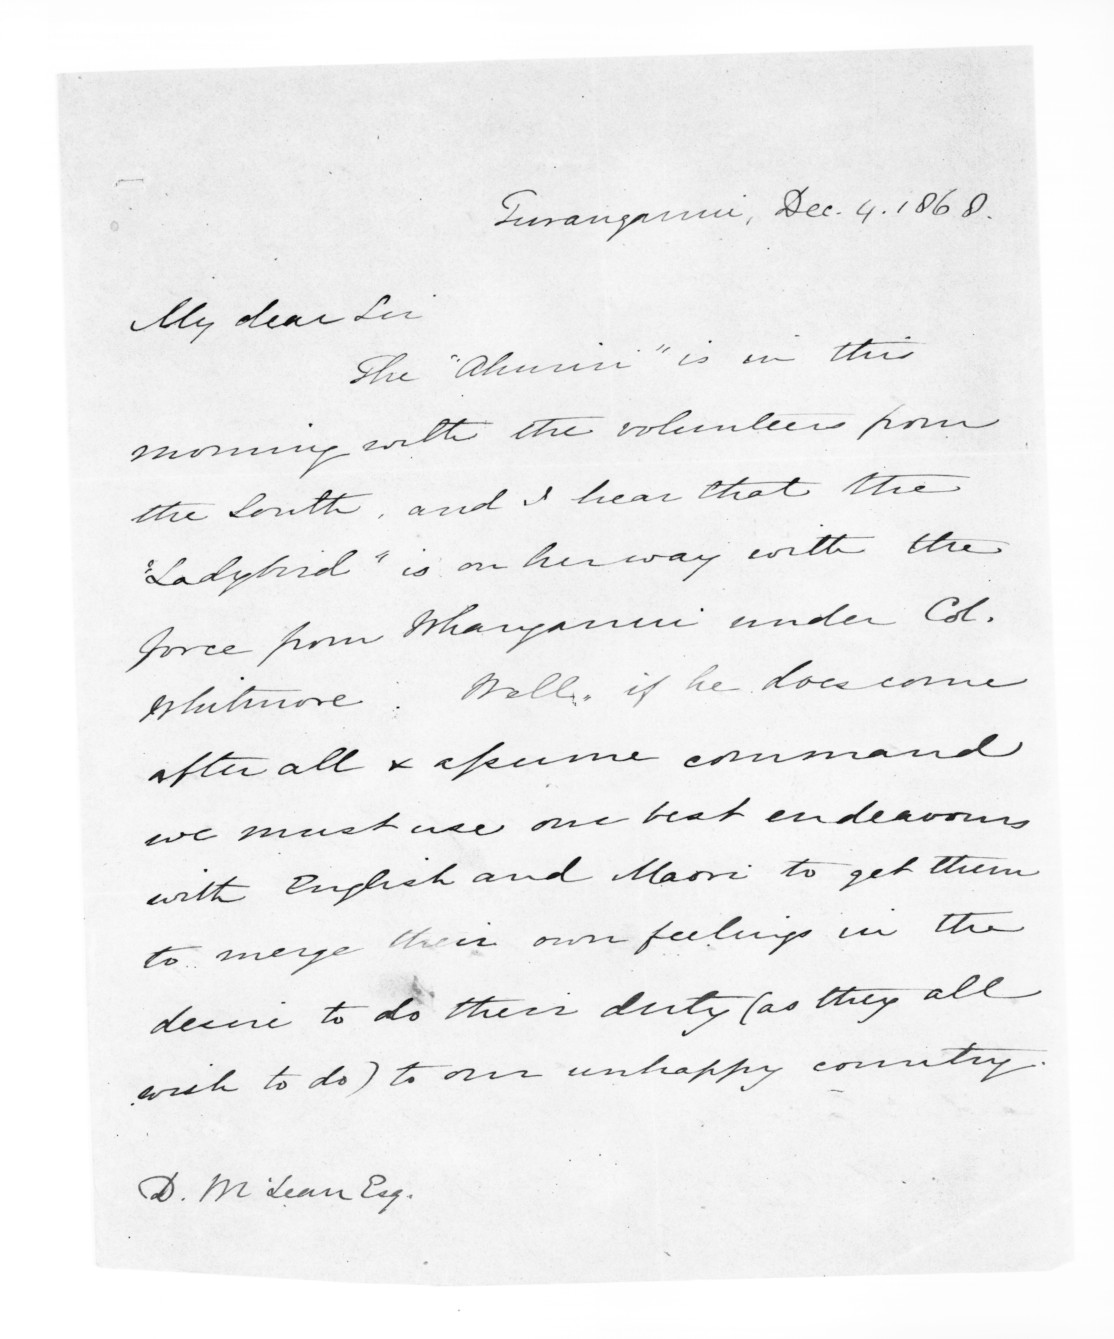 Turanganui, Dec. 4. 1868.
My dear Sir
The "Ahuriri" is in this
morning with the volunteers from
the South, and I hear that the
"Ladybird" is on her way with the
force from Whanganui under Col.
Whitmore. Well, if he does come
after all & assume command
we must use our best endeavours
with English and Maori to get them
to merge their own feelings in the
desire to do their duty (as they all
wish to do) to our unhappy country.
D. McLean Esq.